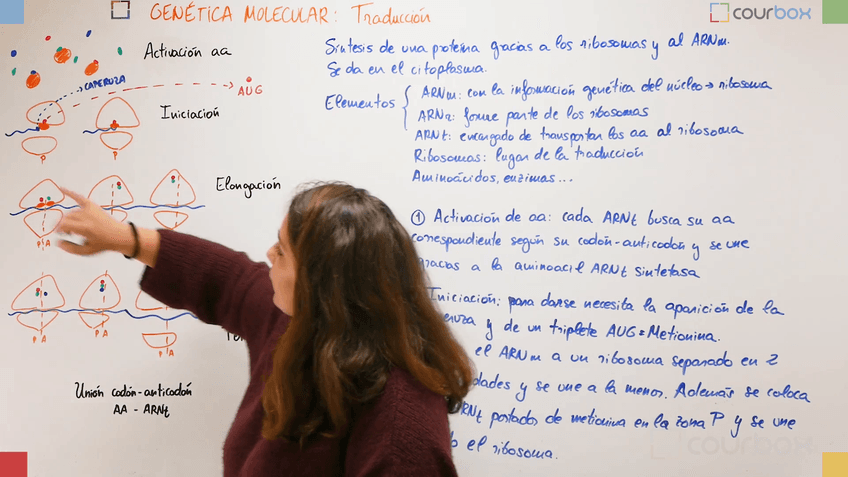 GENÉTICA MOLECULAR: Traducción
courbox
Activación aa
CAPERUZA
AUG
Iniciación
P
P
Elongación
P A
P A
P A
P A
Unión codón-anticodón
AA - ARNt
Síntesis de una proteína gracias a los ribosomas y al ARNm.
Se da en el citoplasma.
Elementos
ARNm: con la información genética del núcleo → ribosoma
ARNr: forme parte de los ribosomas
ARNt: encargado de transportar los aa al ribosoma
Ribosomas: lugar de la traducción
Aminoácidos, enzimas...
① Activación de aa: cada ARNt busca su aa
correspondiente según su codón-anticodón y se une
gracias a la aminoacil ARNt sintetasa
Iniciación: para darse necesita la aparición de la
y de un triplete AUG = Metionina.
el ARNm a un ribosoma separado en 2
y se une a la menor. Además se coloca
portador de metionina en la zona P y se une
el ribosoma.
courbox